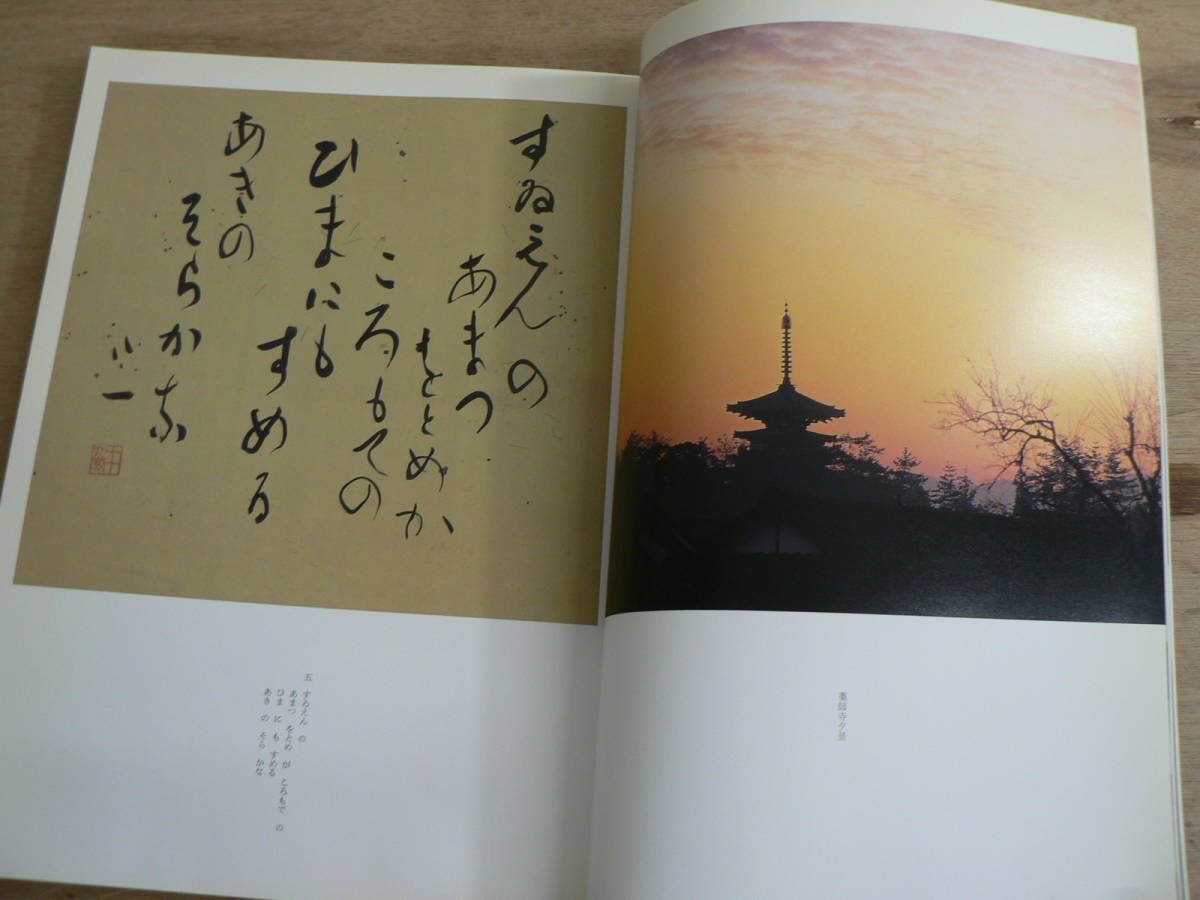 すゐえんの
あまつ
をとめか
ころもての
ひまにも
すめる
あきの
そらかな
八一
五 すゐえん の
あまつ をとめ が ころもで の
ひま に も すめる
あき の そら かな
薬師寺夕景